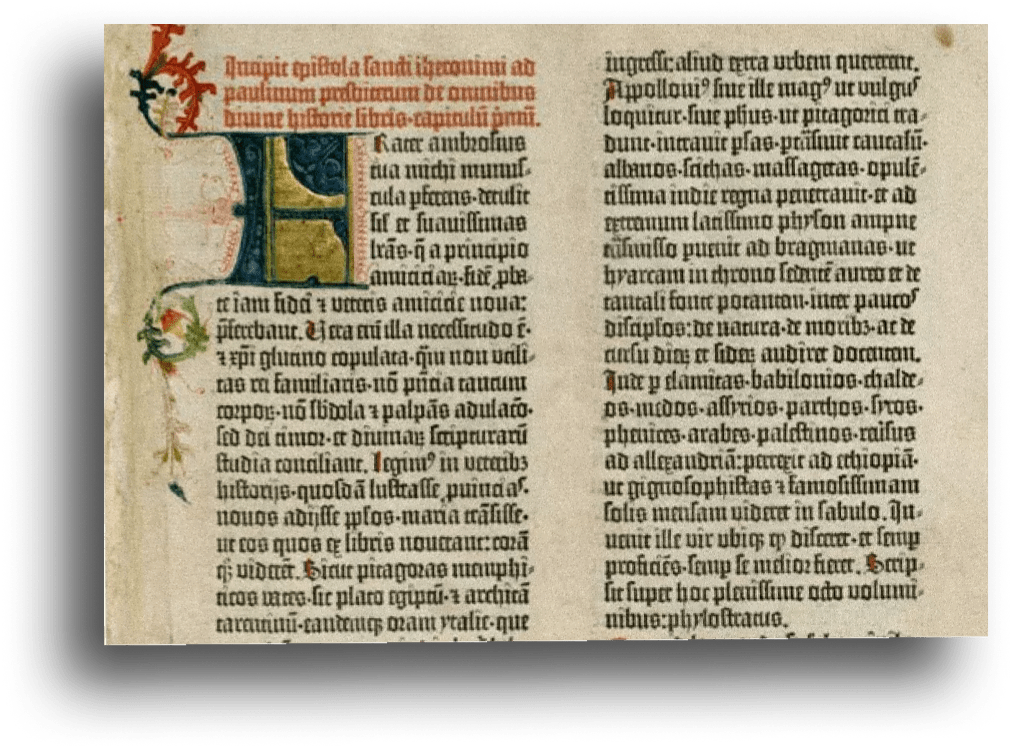 Incipit epistola sancti iheronimi ad
paulinum presbiterum de omnibus
divine historie libris·capitulū p̄mū.
Frater ambrosius
tua michi munus-
cula pferens·detulit
sil̄ et suavissimas
lrās·q̄ a principio
amicicia℞·fidē ꝓba-
te iam fidei ⁊ veteris amicicie nova:
p̄ferebant. Vera eni illa necessitudo ē·
⁊ xp̄i glutino copulata·q̄m non utili-
tas rei familiaris·nō p̄ncia tantum
corpoꝝ·nō sb̄dola ⁊ palpās adulacō·
sed dei timor·et divinaꝝ scripturarū
studia conciliant. Legimꝰ in veteribꝫ
historijs·quosdā lustrasse ꝓvincias·
novos adijsse ppl̄os·maria trāsisse·
ut eos quos ex libris noverant: corā
qꝫ viderēt. Sicut pitagoras memphi-
ticos vates·sic plato egiptū·⁊ architā
tarentinū·eandemqꝫ oram ytalie·que
ingressi: aliud extra urbem quererent.
Appolloniꝰ sive ille magꝰ ut vulgus
loquitur·sive ph̄us·ut pitagorici tra-
dunt·intravit p̄sas·ptrāsivit caucasū·
albanos·scithas·massagetas·opulē-
tissima indie regna penetravit·et ad
extremum latissimo physon ampne
trāsmisso pvenit ad bragmanas·ut
hyarcam in throno sedētē aureo et de
tantali fonte potantem·inter paucos
discipl̄os: de natura·de moribꝫ·ac de
cursu dieꝝ et sideꝝ audiret docentem.
Inde p elamitas·babilonios·chalde-
os·medos·assyrios·parthos·syros·
phenices·arabes·palestinos·reversus
ad allexandriā: perrexit ad ethiopiā·
ut gignosophistas ⁊ famosissimam
solis mensam videret in sabulo. In-
venit ille vir ubiqꝫ qd̄ disceret·et semp
proficiēs·semp se melior fieret. Scrip-
sit super hoc plenissime octo volumi-
nibus: phylostratus.